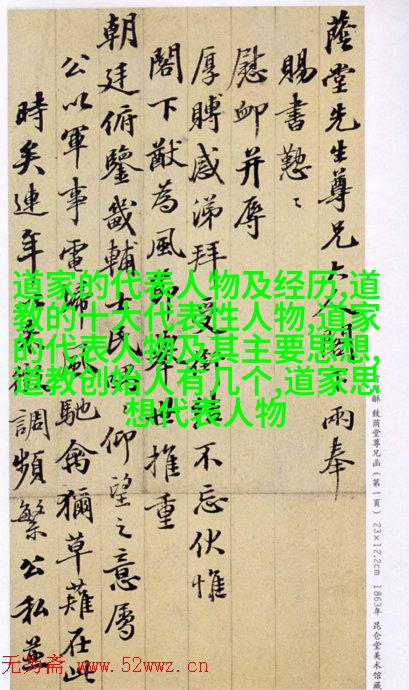 蔭堂先生尊兄大人閣下兩奉
賜書懃〻
慰卹并辱
厚賻感涕拜受銜結不忘伏惟
閣下猷為風節舉世推重
朝廷俯鑒畿輔士民仰望之意屬
公以軍事電掃風馳禽獮草薙在此
時矣連年調頻繁公私並
道家的代表人物及经历,道
教的十大代表性人物,道家
的代表人物及其主要思想,
道教创始人有几个,道家思
想代表人物
致蔭堂尊兄函（第一頁） 23×12.2cm 1863年 昆仑堂美术馆藏
无为斋 www.52wwz.cn